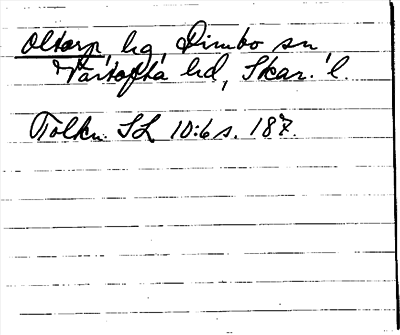 Oltorp, hg, Dimbo sn
Vartofta hd, Skar. l.
Tolkn. SL 10:6 s. 187.